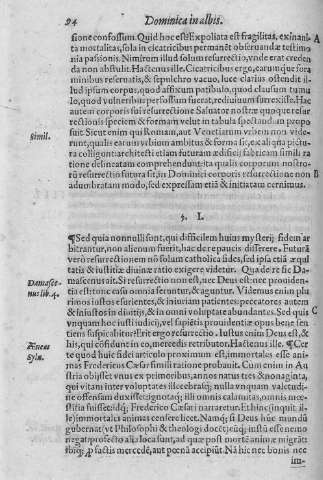 94 Dominica in albis.
sione confossum. Quid hoc est? Expoliata est fragilitas, exinani A
ta mortalitas, sola in cicatricibus permanēt obseruandæ testimo
nia passionis. Nimirum illud solum resurrectio, vnde erat creden
da non abstulit. Hactenus ille. Cicatricibus ergo, earumque fora
minibus reseruatis, & sepulchro vacuo, luce clarius ostendit il-
lud ipsum corpus, quod affixum patibulo, quod clausum tumu
lo, quod vulneribus perfossum fuerat, rediuiuum surrexisse. Hac
autem corporis sui resurrectione Saluator nostræ quoque resur
rectionis speciem & formam velut in tabula spectandam propo
simil. suit. Sicut enim qui Romam, aut Venetiarum vrbem non vide-
runt, qualis earum vrbium ambitus & forma sit, ex aliqua pictu
ra colligunt: architecti etiam futuram ædificij fabricam simili ra
tione delineatam comprehendunt: ita qualis corporum nostro-
rū resurrectio futura sit, in Dominici corporis resurrectione non B
adumbratam modo, sed expressam etiā & initiatam cernimus.
§. I.
¶ Sed quia nonnulli sunt, qui difficilem huius mysterij fidem ar
bitrantur, non alienum fuerit, hac de re paucis disserere. Futurā
verò resurrectionem nō solum catholica fides, sed ipsa etiā æqui
tatis & iustitiæ diuinæ ratio exigere videtur. Qua de re sic Da-
Damasce- mascenus ait. Si resurrectio non est, nec Deus est: nec prouiden-
nus lib. 4. tia est: fortunæ casu omnia feruntur, & aguntur. Videmus enim plu
rimos iustos esurientes, & iniuriam patientes: peccatores autem
& iniustos in diuitijs, & in omni voluptate abundantes. Sed quis C
vnquam hoc iusti iudicij, vel sapientis prouidentiæ opus bene sen
tiens suspicabitur? Erit ergo resurrectio. Iustus enim Deus est, &
Æneas his, qui confidunt in eo, mercedis retributor. Hactenus ille. ¶ Cer
Sylu. te quod huic fidei articulo proximum est, immortales esse ani-
mas Fredericus Cæsar simili ratione probauit. Cum enim in Au
stria obijsset vnus ex primoribus, annos natus tres & nonaginta,
qui vitam inter voluptates illecebrasq; nulla vnquam valetudi-
ne offensam duxisset: ignotasq; illi calamitates omnis, nec mœ-
stitia fuisset: idq; Frederico Cæsari narraretur. Et hinc (inquit il-
le) immortales animas censere licet. Namq; si Deus hūc mundū
gubernat, vt Philosophi & theologi docēt, eūq; iustū esse nemo
negat: profectò alia loca sunt, ad quæ post mortē animæ migrāt:
ibiq; p factis mercedē, aut pœnā accipiūt. Nā hic nec bonis nec
im-